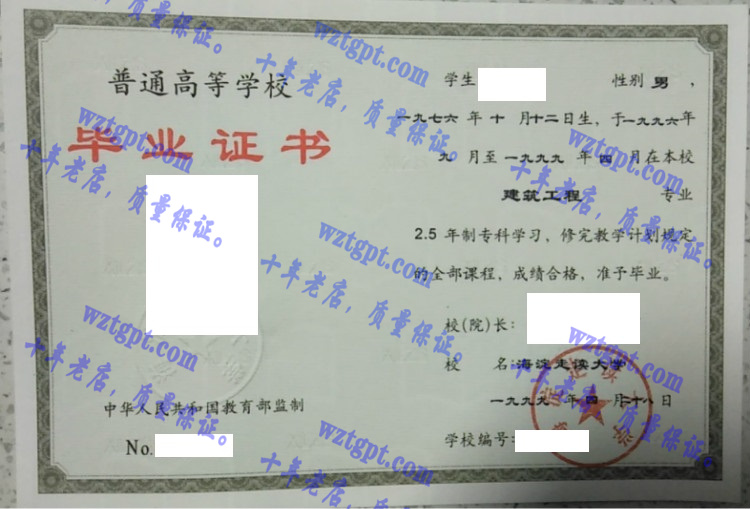 普通高等学校
毕业证书
中华人民共和国教育部监制
No.
学生 性别 男 ，
一九七六 年 十 月十二日生，于一九九六年
九 月至一九九九 年 四 月在本校
建筑工程 专业
2.5 年制专科学习，修完教学计划规定
的全部课程，成绩合格，准予毕业。
校(院)长：
校 名：海淀走读大学
一九九九 年 四 月十八日
学校编号：
wztgpt.com
十年老店，质量保证。
wztgpt.com
十年老店，质量保证。
wztgpt.com
十年老店，质量保证。
wztgpt.com
十年老店，质量保证。
wztgpt.com
十年老店，质量保证。
wztgpt.com
十年老店，质量保证。
wztgpt.com
十年老店，质量保证。